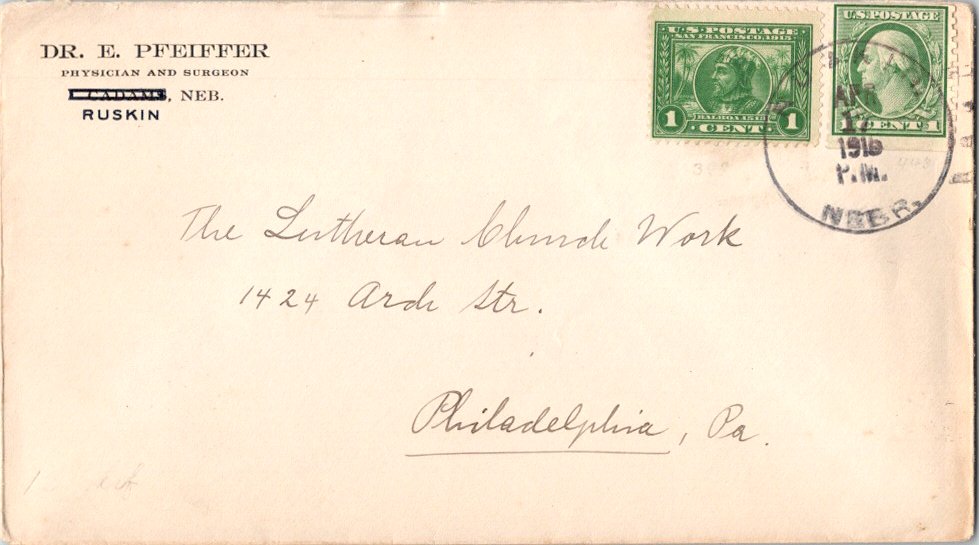 DR. E. PFEIFFER
PHYSICIAN AND SURGEON
ADAMS, NEB.
RUSKIN
U.S. POSTAGE
SAN FRANCISCO 1915
BALBOA 1513
1 CENT 1
U.S. POSTAGE
CENT 1
APR
17
1915
P.M.
NEBR.
The Lutheran Church Work
1424 Arch Str.
Philadelphia, Pa.